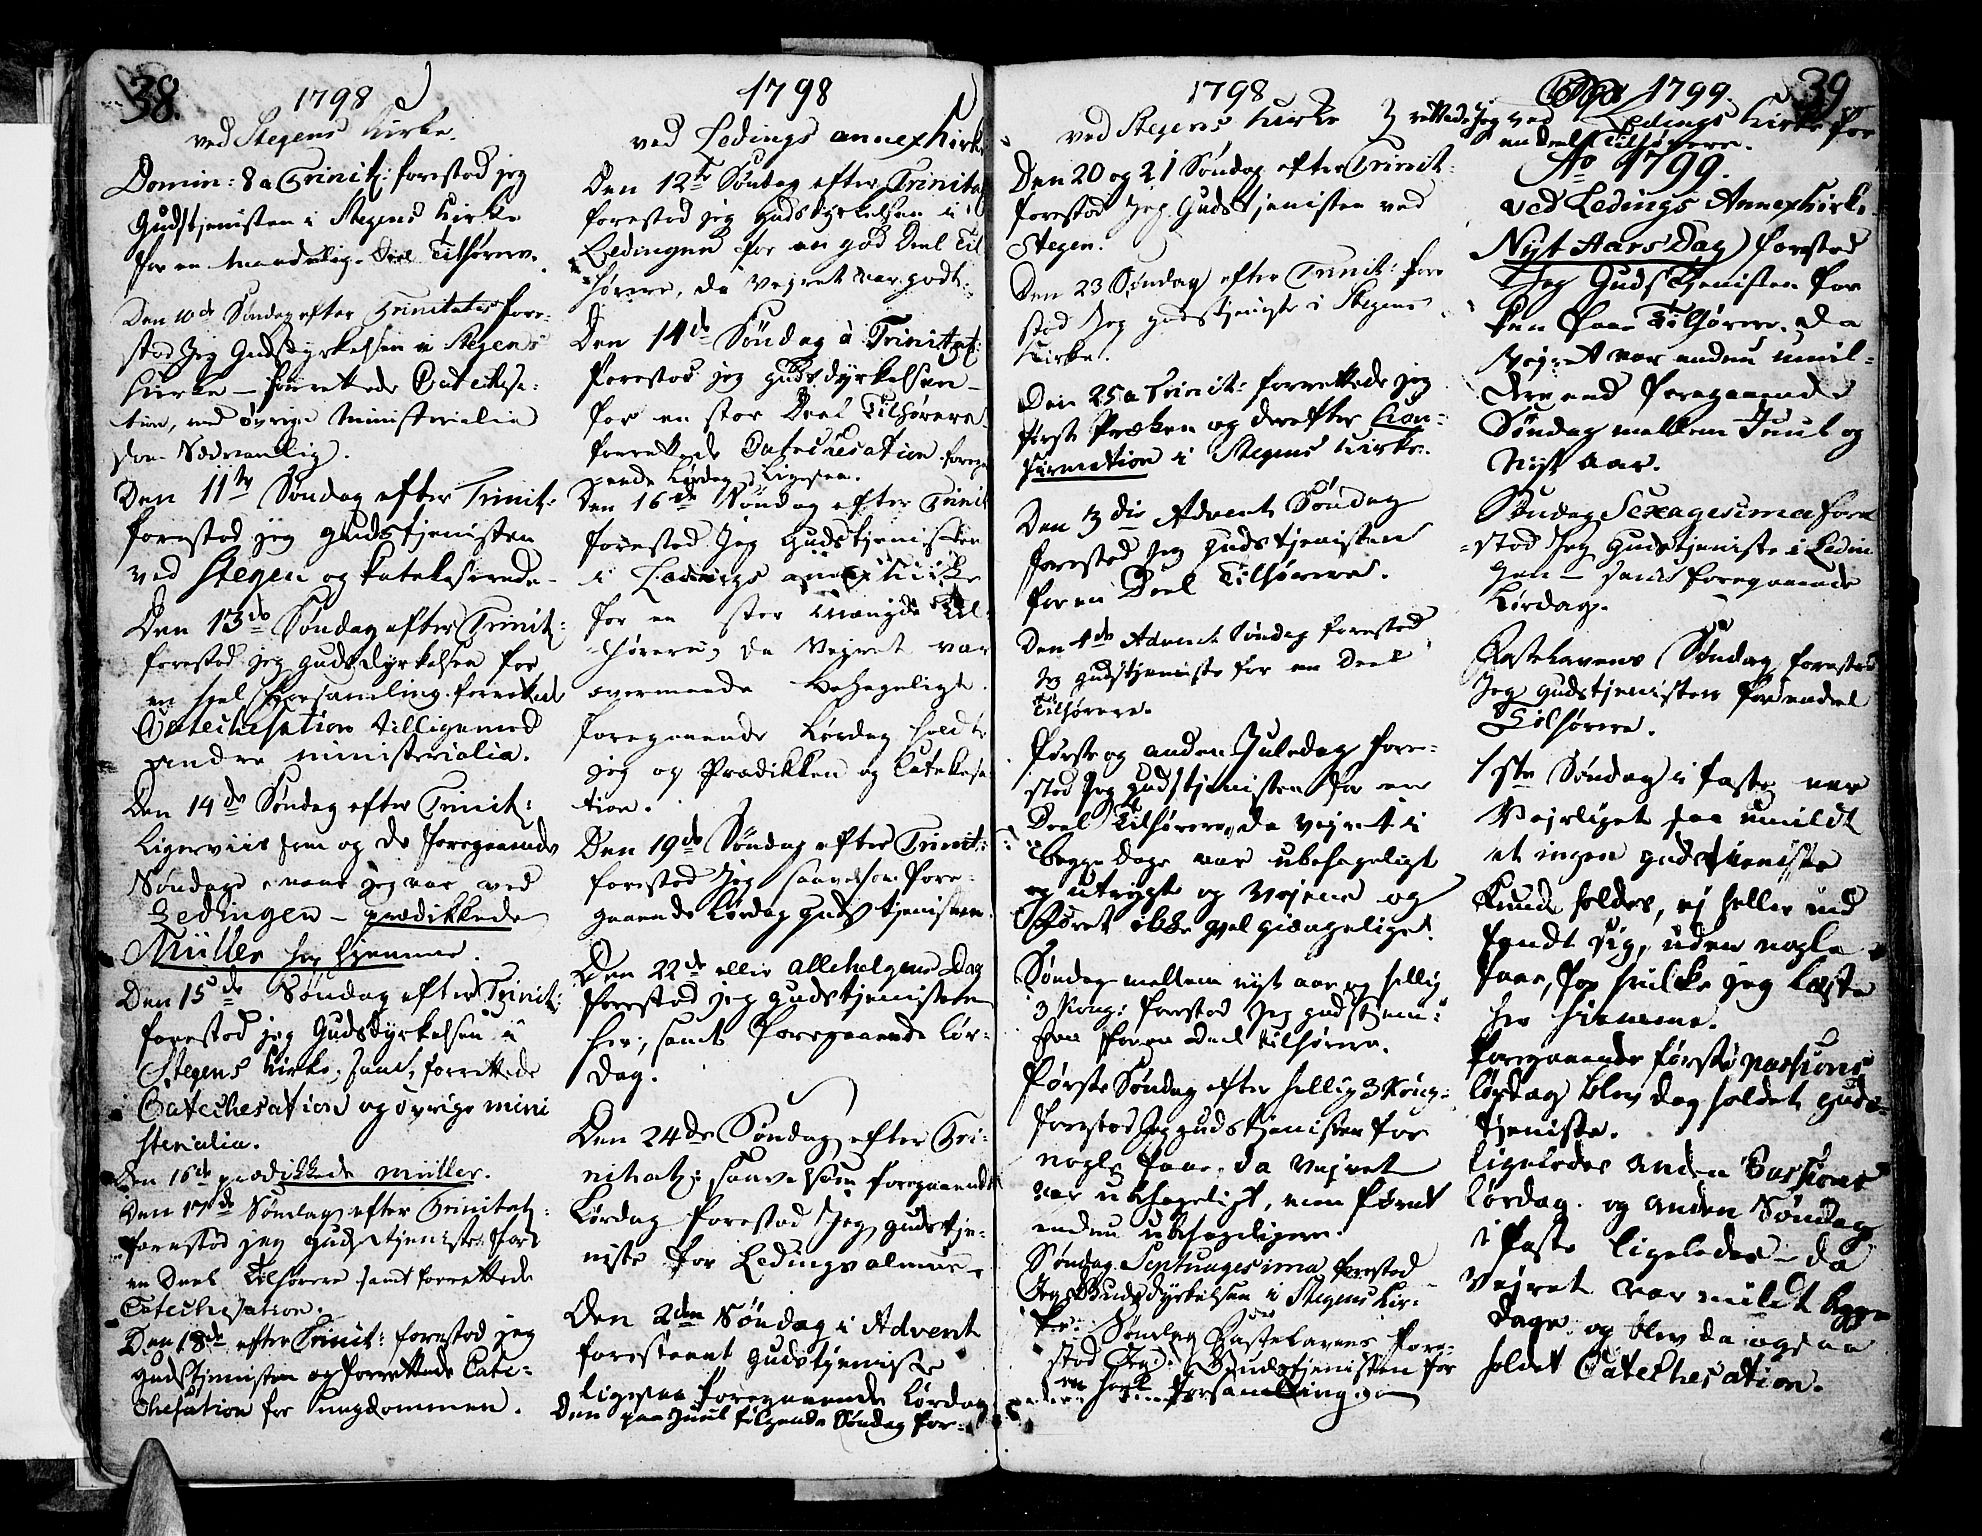 38.
1798
ved Stegens Kirke.
Domin: 8 a Trinit: forestod jeg
Gudstjenisten i Stegens Kirke
for en maadelig Deel Tilhørere.
Den 10de Søndag efter Trinitatis fore-
stod Jeg Gudsdyrkelsen i Stegens
Kirke – forrettede Catechisa-
tion, med øvrige Ministerialia
som Sædvanlig.
Den 11te Søndag efter Trinit:
forestod jeg gudstjenisten
ved Stegen og katekiserede.
Den 13de Søndag efter Trinit:
forestod jeg gudsdyrkelsen for
en heel forsamling forrettede
Catechesation tilligemed
andre ministerialia.
Den 14de Søndag efter Trinit:
ligerviis som og de foregaaende
Søndage naar jeg var ved
Ledingen – prædikkede
Müller her hjemme.
Den 15de Søndag efter Trinit:
forestod jeg Gudsdyrkelsen i
Stegens Kirke, samt forrettede
Catechesation og øvrige mini
sterialia.
Den 16de prædikkede Müller.
Den 17de Søndag efter Trinitat:
forestod jeg gudstjenisten for
en Deel Tilhørere samt forrettede
Catechesation.
Den 18de efter Trinit: forestod jeg
gudstjenisten og forrettede Cate-
chesation for Ungdommen.
1798
ved Ledings annex Kirke
Den 12te Søndag efter Trinita
forestod jeg gudsdyrkelsen i
Ledingen for en god Deel Til
hørere, da Vejret var godt.
Den 14de Søndag a Trinitat:
forestod jeg gudsdyrkelsen
for en stor Deel Tilhørere
forrettede Catechesation forega
aende Lørdag Ligesaa.
Den 16de Søndag efter Trinit
forestod Jeg Gudstjenisten
i Ledings annex Kirke
for en stor Mængde Til-
hørere, da Vejret var
overmaade behageligt.
foregaaende Lørdag holdte
jeg og Prædikken og Catekesa
tion.
Den 19de Søndag efter Trinit:
forestod Jeg saavelsom fore-
gaaende Lørdag Gudstjenisten.
Den 22de eller Allehelgens Dag
forestod jeg gudstjenisten
her, samt foregaaende Lør-
dag.
Den 24de Søndag efter Tri-
nitat: saavelsom foregaaende
Lørdag forestod Jeg gudstje-
niste for Ledings almue.
Den 2den Søndag i Advent
forestaaet gudstjeniste
ligesaa foregaaende Lørdag
Den paa Juul følgende Søndag for-
1798
ved Stegens Kirke
Den 20 og 21 Søndag efter Trinit:
forestod Jeg Gudstjenisten ved
Stegen.
Den 23 Søndag efter Trinit: fore
stod Jeg gudstjeniste i Stegens
Kirke.
Den 25 a Trinit: forrettede jeg
først Præken og derefter Con-
firmation i Stegens Kirke.
Den 3die Advent Søndag
forestod Jeg gudstjenisten
for en Deel Tilhørere.
Den 4de Advent Søndag forestod
jeg gudstjeniste for en Deel
Tilhørere.
første og anden Juledag fore-
stod Jeg gudstjenisten for en
Deel Tilhørere, da Vejret i
begge Dage var ubehageligt
og utrygt og Vejene og
Føret ikke vel giængeligt.
Søndag mellem nyt aar og hellig
3 Kong: forestod Jeg gudstjeni-
sten for en Deel Tilhørere.
Første Søndag efter hellig 3 Kong:
forestod Jeg gudstjenisten for
nogle faae, da Vejret
var ubehageligt, men Føret
endnu ubehageligere.
Søndag Septuagesima forestod
Jeg Gudsdyrkelsen i Stegens Kir-
ke. Søndag Fastelavens fore-
stod Jeg Gudstjenisten for
en stærk forsamling
39
1799.
rettede Jeg ved Ledings Kirke for
en deel Tilhørere.
Ao 1799.
ved Ledings Annex Kirke.
Nyt Aars Dag forestod
Jeg Gudstjenisten for
een faae Tilhørere, da
Vejret var endnu umil-
dere end foregaaende
Søndag mellem Juul og
Nyt aar.
Søndag Sexagesima fore
stod Jeg Gudstjeniste i Ledin
gen – samt foregaaende
Lørdag.
Fastelavens Søndag forestod
Jeg gudstjenisten for endeel
Tilhørere.
1ste Søndag i faste var
Vejrliget saa umildt
at ingen gudstjeniste
kunde holdes, ej heller ind
fandt sig, uden nogle
faae, for hvilke jeg læste
her hjemme.
foregaaende første passions
lørdag blev dog holdet guds-
tjeniste.
ligeledes anden Passions
Lørdag. og anden Søndag
i faste ligeledes – da
Vejret var mildt begge
Dage og blev da ogsaa
holdet Catechesation.